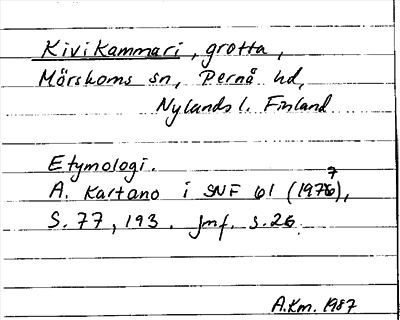 Kivikammari, grotta,
Mörskoms sn, Pernå hd,
Nylands l. Finland
Etymologi.
A. Kartano i SNF 61 (1977),
S. 77, 193. Jmf. s. 26.
A.Km. 1987